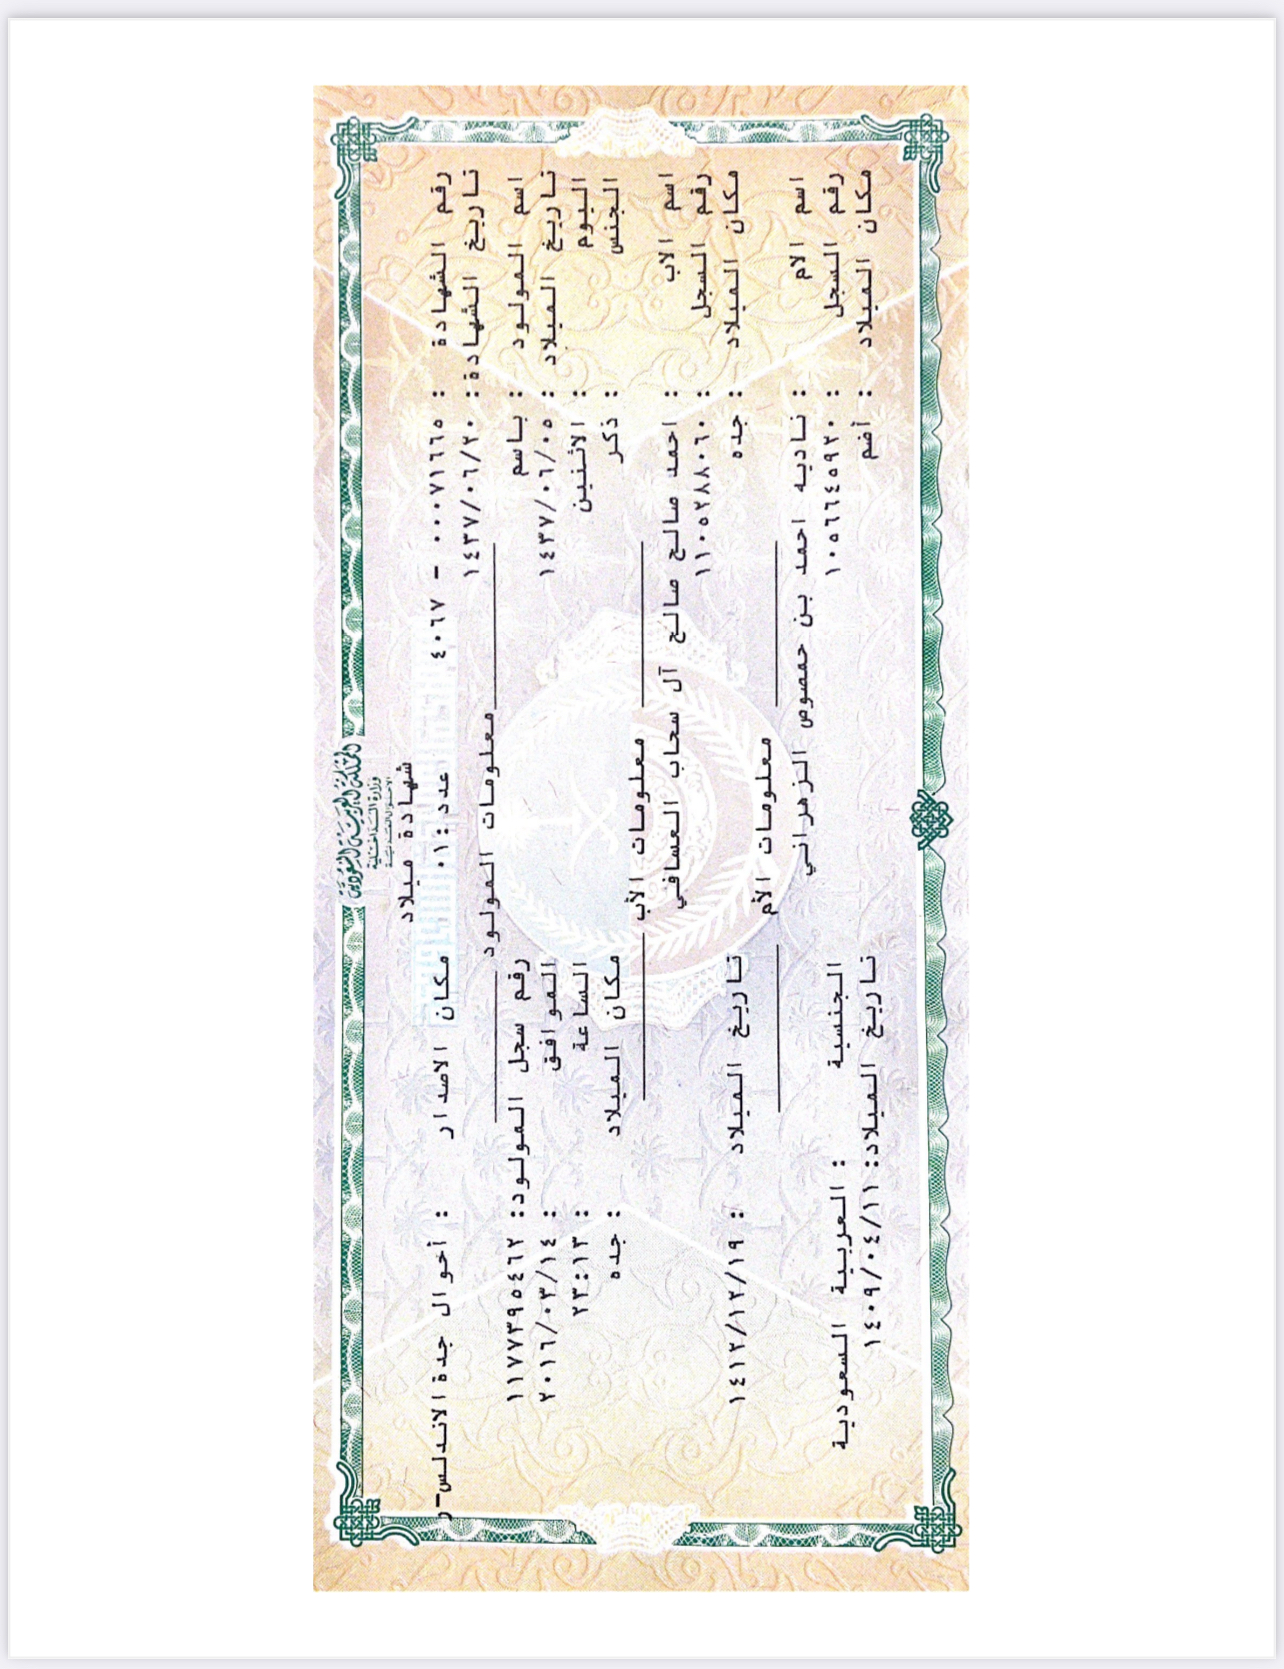 المملكة العربية السعودية
وزارة الداخلية
الأحوال المدنية
شهادة ميلاد
رقم الشهادة : ٠٠٠٧١٦٦٥ - ٤٠٦٧ عدد :٠١ مكان الاصدار : أحوال جدة الاندلس-ر
تاريخ الشهادة: ١٤٣٧/٠٦/٢٠
معلومات المولود
اسم المولود : باسم رقم سجل المولود: ١١٧٧٣٩٥٤٦٢
تاريخ الميلاد : ١٤٣٧/٠٦/٠٥ الموافق : ٢٠١٦/٠٣/١٤
اليوم : الاثنين الساعة : ٢٣:١٣
الجنس : ذكر مكان الميلاد : جده
معلومات الأب
اسم الاب : احمد صالح صالح آل سحاب العسافي
رقم السجل : ١١٠٥٢٨٨٠٦٠
مكان الميلاد : جده تاريخ الميلاد : ١٤١٢/١٢/١٩
معلومات الأم
اسم الام : ناديه احمد بن حمصوص الزهراني
رقم السجل : ١٠٥٦٦٤٥٩٢٠ الجنسية : العربية السعودية
مكان الميلاد : أضم تاريخ الميلاد: ١٤٠٩/٠٤/١١